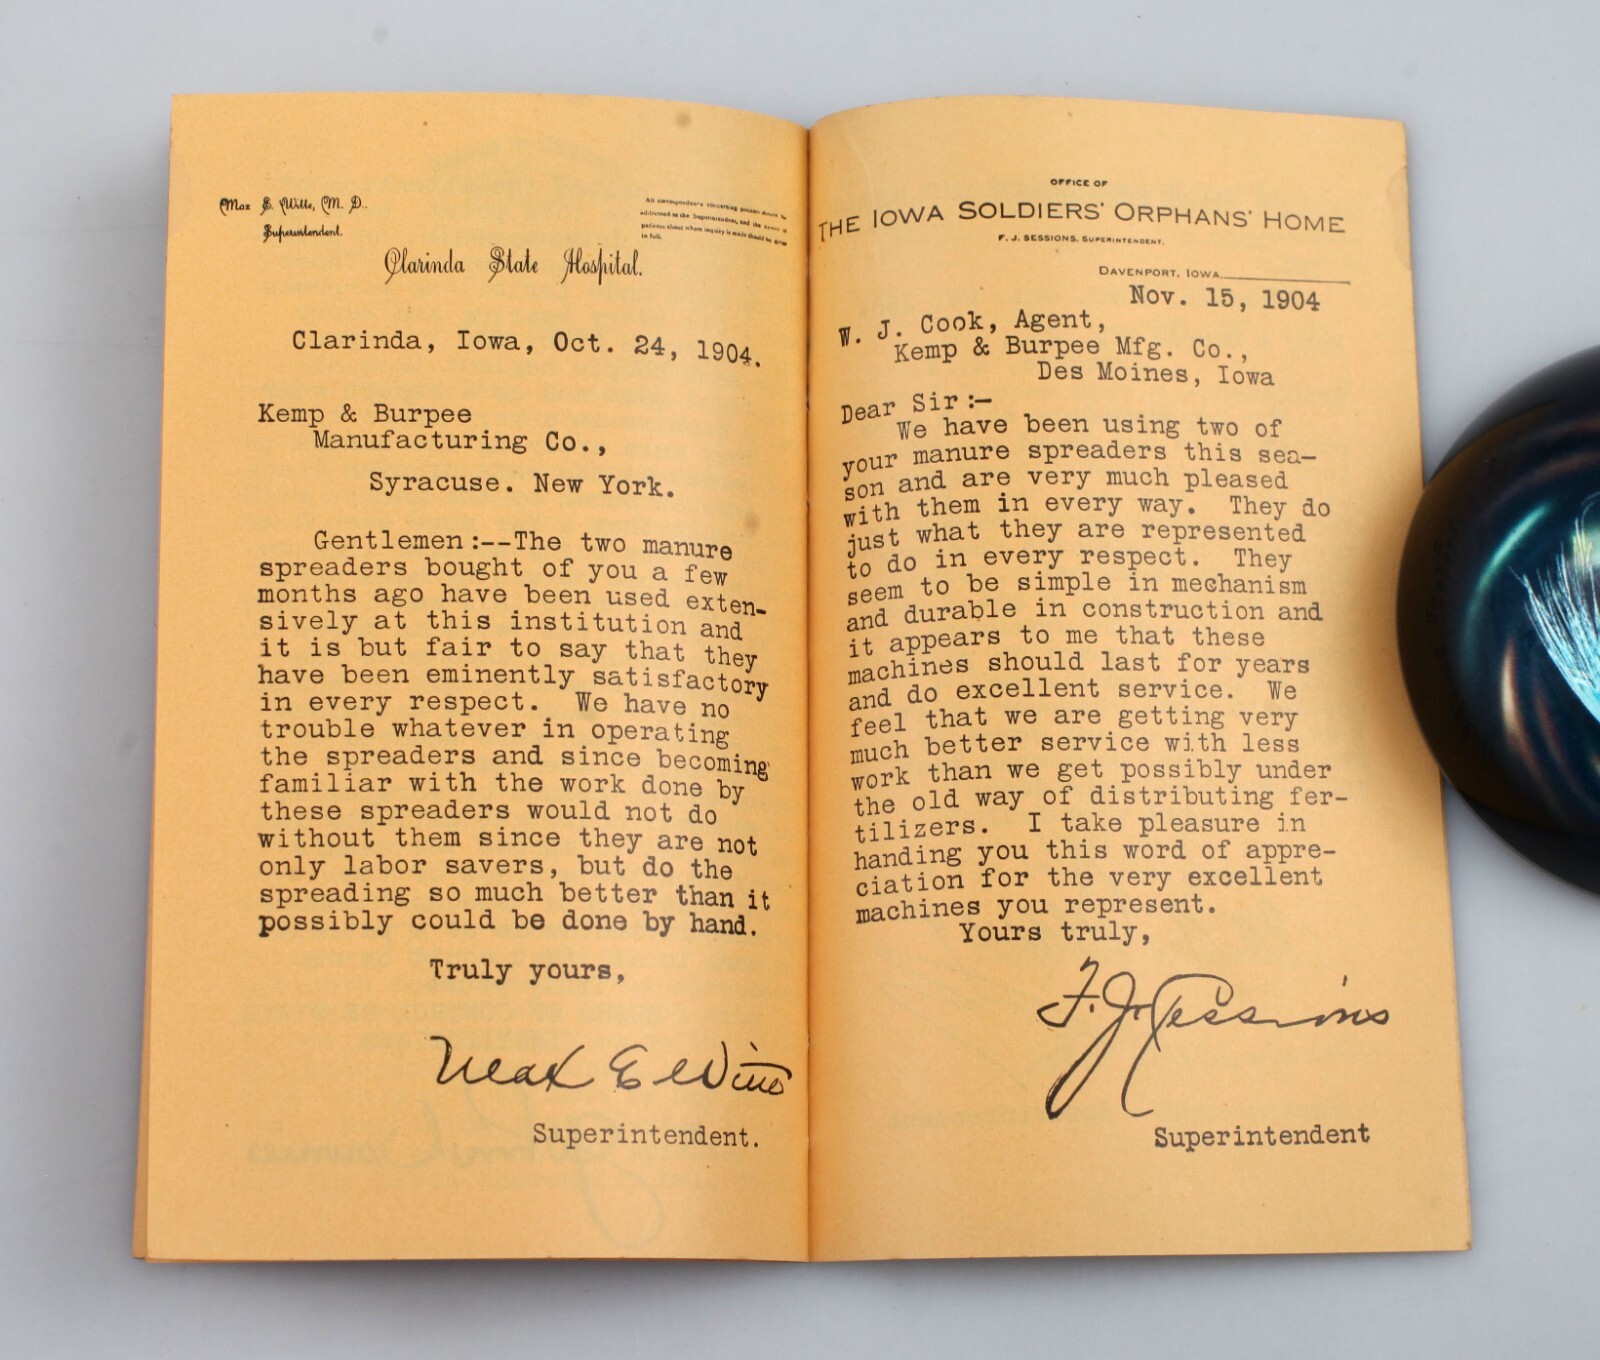 Max E. Witte, M. D.
Superintendent.
All correspondence concerning patients should be
addressed to the Superintendent, and the name of
patients about whom inquiry is made should be given
in full.
Clarinda State Hospital.
Clarinda, Iowa, Oct. 24, 1904.
Kemp & Burpee
Manufacturing Co.,
Syracuse. New York.
Gentlemen:--The two manure
spreaders bought of you a few
months ago have been used exten-
sively at this institution and
it is but fair to say that they
have been eminently satisfactory
in every respect. We have no
trouble whatever in operating
the spreaders and since becoming
familiar with the work done by
these spreaders would not do
without them since they are not
only labor savers, but do the
spreading so much better than it
possibly could be done by hand.
Truly yours,
Max E Witte
Superintendent.
OFFICE OF
THE IOWA SOLDIERS' ORPHANS' HOME
F. J. SESSIONS, SUPERINTENDENT.
DAVENPORT, IOWA.
Nov. 15, 1904
W. J. Cook, Agent,
Kemp & Burpee Mfg. Co.,
Des Moines, Iowa
Dear Sir:-
We have been using two of
your manure spreaders this sea-
son and are very much pleased
with them in every way. They do
just what they are represented
to do in every respect. They
seem to be simple in mechanism
and durable in construction and
it appears to me that these
machines should last for years
and do excellent service. We
feel that we are getting very
much better service with less
work than we get possibly under
the old way of distributing fer-
tilizers. I take pleasure in
handing you this word of appre-
ciation for the very excellent
machines you represent.
Yours truly,
F. J. Sessions
Superintendent